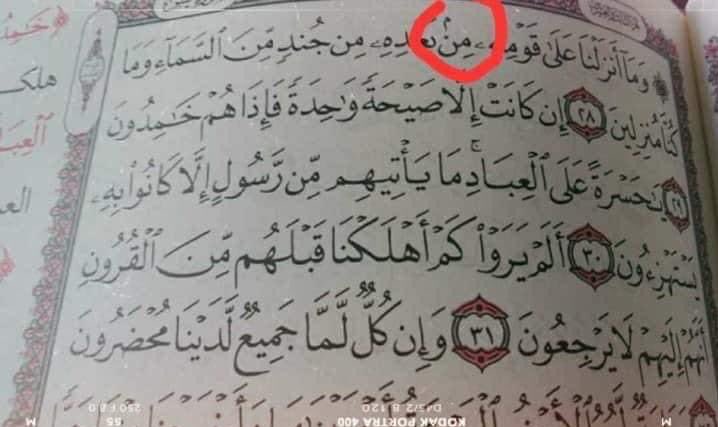 وَمَآ أَنزَلْنَا عَلَىٰ قَوْمِهِۦ مِنۢ بَعْدِهِۦ مِن جُندٍ مِّنَ ٱلسَّمَآءِ وَمَا
كُنَّا مُنزِلِينَ ٢٨ إِن كَانَتْ إِلَّا صَيْحَةً وَٰحِدَةً فَإِذَا هُمْ خَـٰمِدُونَ
٢٩ يَـٰحَسْرَةً عَلَى ٱلْعِبَادِ ۚ مَا يَأْتِيهِم مِّن رَّسُولٍ إِلَّا كَانُوا۟ بِهِۦ
يَسْتَهْزِءُونَ ٣٠ أَلَمْ يَرَوْا۟ كَمْ أَهْلَكْنَا قَبْلَهُم مِّنَ ٱلْقُرُونِ
أَنَّهُمْ إِلَيْهِمْ لَا يَرْجِعُونَ ٣١ وَإِن كُلٌّ لَّمَّا جَمِيعٌ لَّدَيْنَا مُحْضَرُونَ
M KODAK PORTRA 400 D43/2 8 120 55 250 F8.0 M